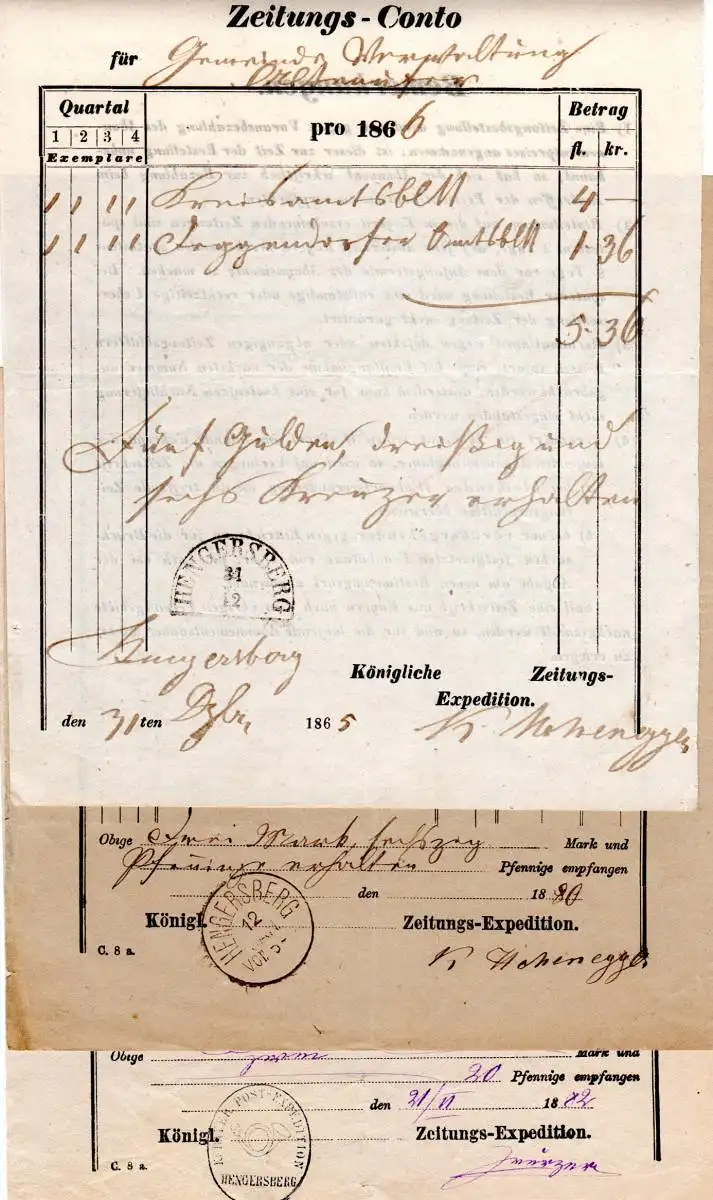 Zeitungs-Conto
für Gemeinde Verwaltung
Quartal
Betrag
1 2 3 4
pro 1866
Exemplare
fl. kr.
1 1 1 1 Kreisamtsblatt 4 —
1 1 1 1 Deggendorfer Amtsbltt 1. 36
5. 36
Fünf Gulden, dreißig und
sechs Kreuzer erhalten
HENGERSBERG
31
12
Hengersberg
Königliche Zeitungs-
Expedition.
den 31ten Dzbr. 1865
K. Hohenegger
Obige Zwei Mark, sechszig Mark und
Pfennige erhalten Pfennige empfangen
den 1880
HENGERSBERG
12
Königl. Zeitungs-Expedition.
C. 8 a.
K. Hohenegger
Obige Mark und
20 Pfennige empfangen
den 21/VI 1882
POST-EXPEDITION
HENGERSBERG
Königl. Zeitungs-Expedition.
C. 8 a.